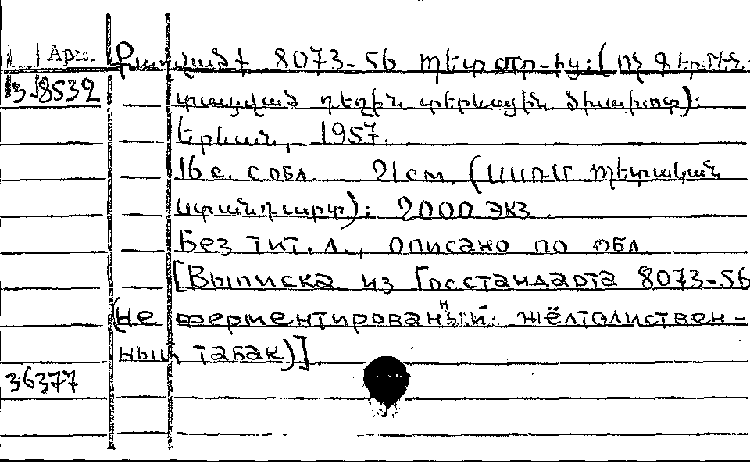 Арм. Քաղված 8073-56 պետ ստր-ից: (ոչ ֆերմեն-
3.8532 տացված դեղին տերևային ծխախոտ):
Երևան, 1957.
16 с. с обл. 21 см. (ՍՍՌՄ պետական
ստանդարտ): 2000 экз.
Без тит. л., описано по обл.
[Выписка из Госстандарта 8073-56
(не ферментированный жёлтолиствен-
ный табак)]
36377